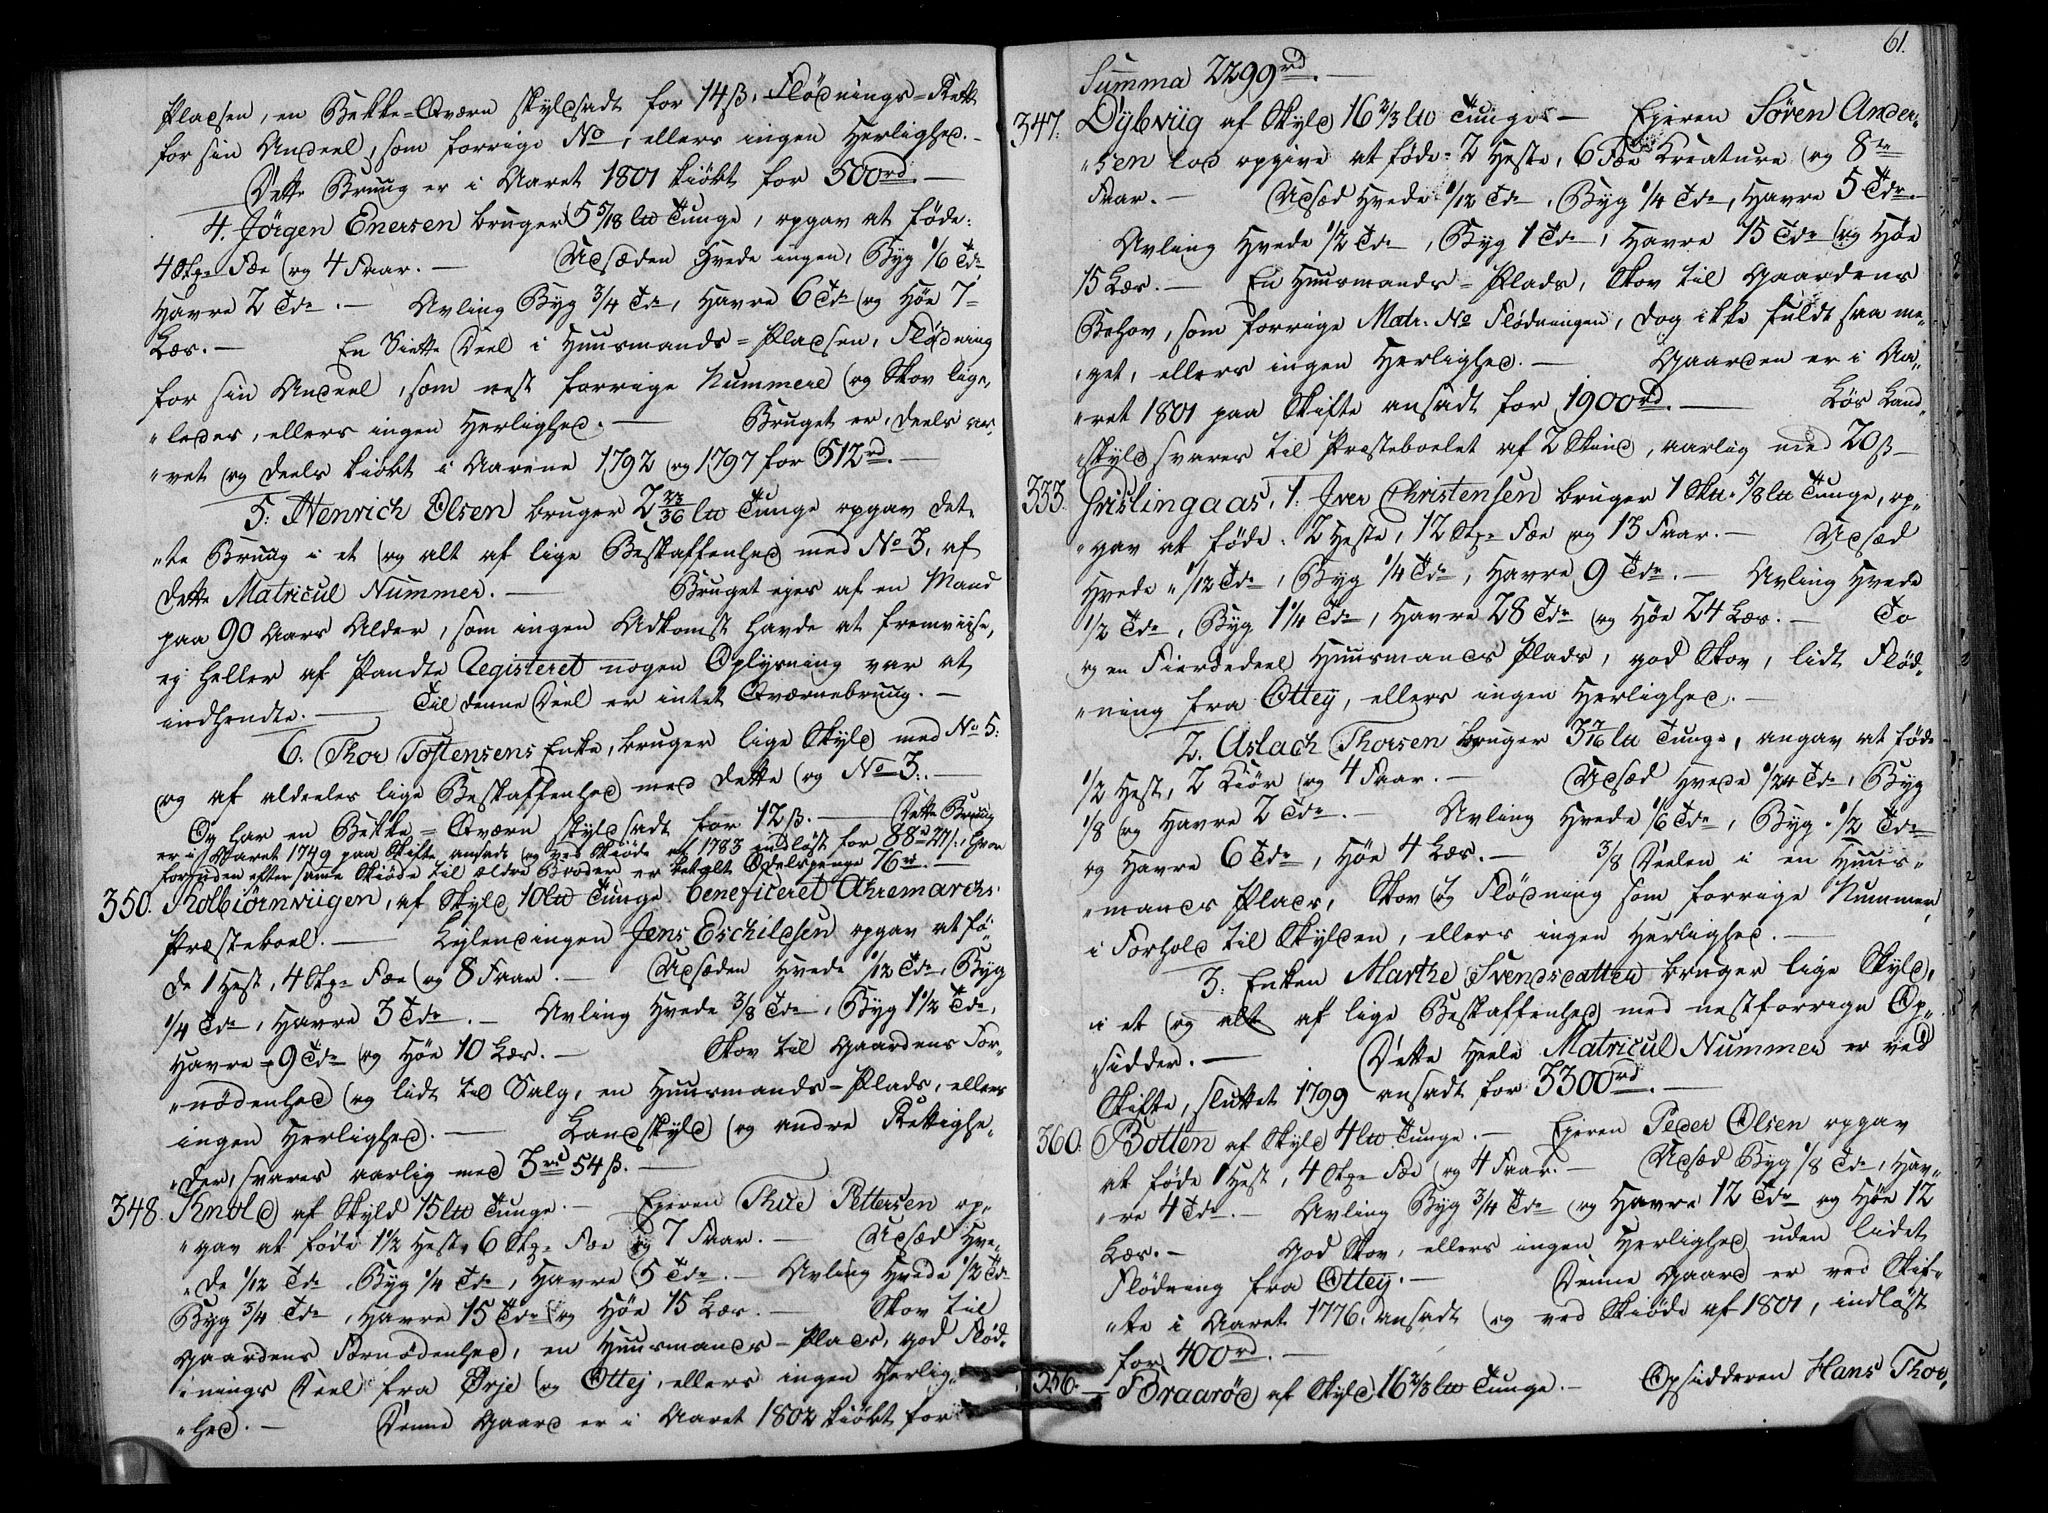 Pladsen, en Bekke-Qværn skyldsadt for 14 ß, Flödnings-Rett
for sin Andeel, som forrige No, ellers ingen Herlighed. –
Dette Bruug er i Aaret 1801 kiöbt for 500 rd. –
4. Jörgen Enersen bruger 5 5/18 lw Tunge, opgav at föde:
4 Stkr Fæe og 4 Faar. – Udsæden Hvede ingen, Byg 1/6 Tde
Havre 2 Tde. – Avling Byg 3/4 Td, Havre 6 Tde og Höe 7
Læs. – En Siette Deel i Huusmands-Pladsen, Flödning
for sin Andeel, som nest forrige Nummere og Skov lige„
„ledes, ellers ingen Herlighed. – Bruget er, deels ar„
„vet og deels kiöbt i Aarene 1792 og 1797 for 512 rd. –
5: Henrich Olsen bruger 2 23/36 lw Tunge opgav det„
„te Bruug i et og alt af lige Beskaffenhed med No 3, af
dette Matricul Nummer. – Bruget ejes af en Mand
paa 90 Aars Alder, som ingen Adkomst havde at fremviise,
ej heller af Pandte Registeret nogen Oplysning var at
indhendte. – Til denne Deel er intet Qværnebruug. –
6. Thor Tostensens Enke, bruger lige Skyld med No 5:
og af aldeeles lige Beskaffenhed med dette og No 3:. –
Og har en Bekke-Qværn skyldsadt for 12 ß. – Dette Bruug
er i Aaret 1749 paa Skifte ansadt og ved Skiöde af 1783 indlöst for 88 rd 22 ß., hvor
foruden efter samme Skiöde til ældre Broder er betalt Odelspenge 76 rd.
350. Kolbiörnviigen, af Skyld 10 lw Tunge beneficeret Ahremarchs
Præsteboel. – Leylendingen Jens Eschildsen opgav at fö„
de 1 Hest, 4 Stkr Fæe og 8 Faar. – Udsæden Hvede 1/12 Tde, Byg
1/4 Tde, Havre 3 Tde. – Avling Hvede 3/8 Tde, Byg 1 1/2 Tde,
Havre 9 Tde og Höe 10 Læs. – Skov til Gaardens For„
„nödenhed og lidt til Salg, en Huusmands-Plads, ellers
ingen Herlighed. – Landskyld og andre Rettighe„
„der, svares aarlig med 3 rd 54 ß. –
348. Knold af Skyld 15 lw Tunge. – Ejeren Thue Pettersen op„
„gav at föde 1 1/2 Hest, 6 Stkr Fæe og 7 Faar. – Udsæd Hve„
„de 1/12 Tde, Byg 1/4 Tde, Havre 5 Tde. – Avling Hvede 1/2 Tde
Byg 3/4 Tde, Havre 15 Tde og Höe 15 Læs. – Skov til
Gaardens Fornödenhed, en Huusmands-Plads, god Flöd„
„nings Deel fra Ørje og Ottej, ellers ingen Herlig„
„hed. – Denne Gaard er i Aaret 1802 kiöbt for
61.
Summa 2299 rd. –
347. Dÿbviig af Skyld 16 2/3 lw Tunge – Ejeren Sören Ander„
„sen lod opgive at föde: 2 Heste, 6 Fæe Kreature og 8te
Faar. – Udsæd Hvede 1/12 Tde, Byg 1/4 Tde, Havre 5 Tdr –
Avling Hvede 1/2 Tde, Byg 1 Tde, Havre 15 Tde og Höe
15 Læs. – En Huusmands-Plads, Skov til Gaardens
Behov, som forrige Matr. No Flödningen, dog ikke fuldt saa me„
„get, ellers ingen Herlighed. – Gaarden er i Aa„
„ret 1801 paa Skifte ansadt for 1900 rd. – Lös Land„
„skyld svares til Præsteboelet af 2 Skind, aarlig med 20 ß –
333. Grislingaas, 1. Iver Christensen bruger 1 Skd 5/8 lw Tunge, op„
„gav at föde: 2 Heste, 12 Stkr Fæe og 13 Faar. – Udsæd
Hvede 1/12 Tde, Byg 1/4 Tde, Havre 9 Tde. – Avling Hvede
1/2 Tde, Byg 1 1/4 Tde, Havre 28 Tde og Höe 24 Læs. – To
og en Fierdedeel Huusmands Plads, god Skov, lidt Flöd„
„ning fra Ottey, ellers ingen Herlighed. –
2. Aslach Thorsen bruger 3 7/16 lw Tunge, angav at föde
1/2 Hest, 2 Kiör og 4 Faar. – Udsæd Hvede 1/24 Tde, Byg
1/8 og Havre 2 Tde. – Avling Hvede 1/6 Tde, Byg 1/2 Tde
og Havre 6 Tde, Höe 4 Læs. – 3/8 Deelen i en Huus„
„mands Plads, Skov og Flödning som forrige Nummer,
i Forhold til Skylden, ellers ingen Herlighed. –
3: Enken Marthe Svendsdatter bruger lige Skyld,
i et og alt af lige Beskaffenhed med nestforrige Op„
„sidder. – Dette heele Matricul Nummer er ved
Skifte, sluttet 1799 ansadt for 3300 rd. –
360. Botten af Skyld 4 lw Tunge. – Ejeren Peder Olsen opgav
at föde 1 Hest, 4 Stkr Fæe og 4 Faar. – Udsæd Byg 1/8 Tde, Hav„
„re 4 Tde. – Avling Byg 3/4 Tde og Havre 12 Tde og Höe 12
Læs. – God Skov, ellers ingen Herlighed uden lidet
Flödning fra Ottej. – Denne Gaard er ved Skif„
„te i Aaret 1776. ansadt og ved Skiöde af 1801, indlöst
for 400 rd. –
356. – Braaröd af Skyld 16 2/3 lw Tunge. – Opsidderen Hans Thor„